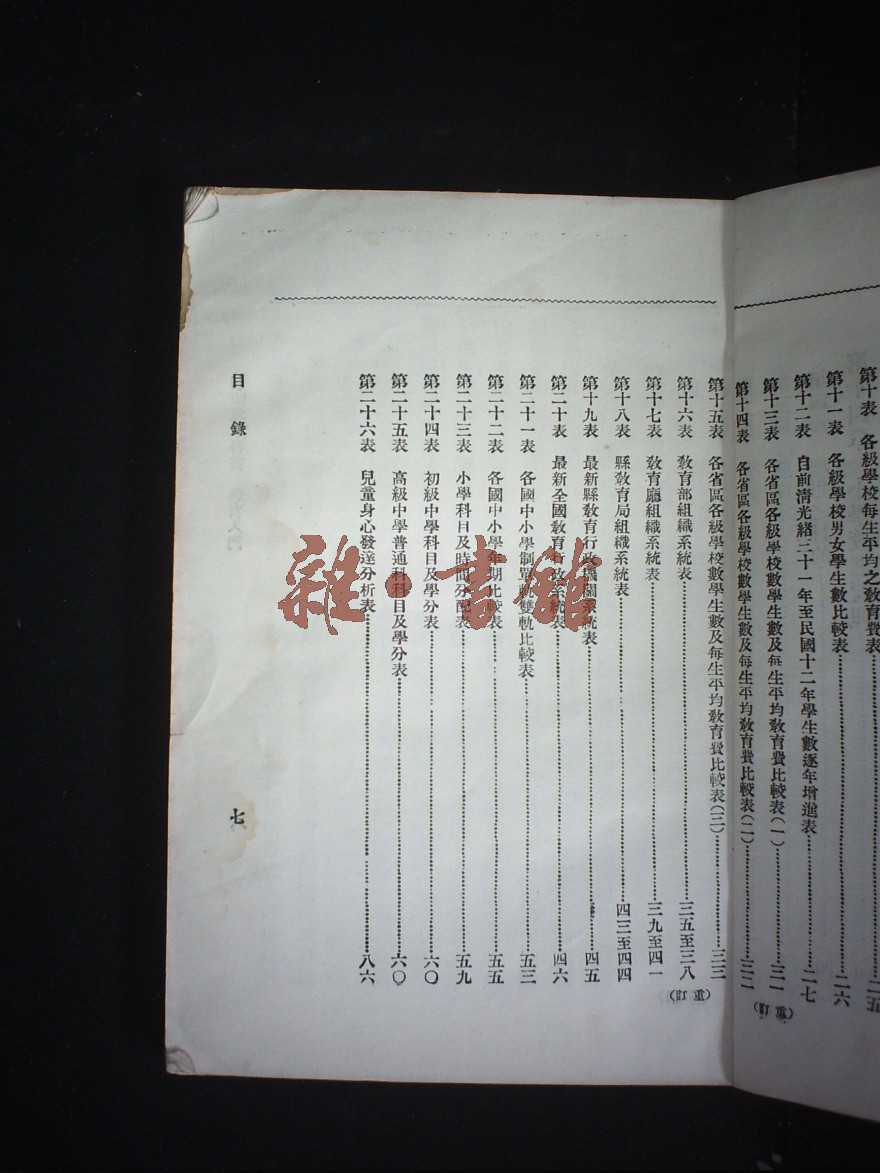 第十表 各級學校每生平均之敎育費表……二五
第十一表 各級學校男女學生數比較表……二六
第十二表 自前淸光緒三十一年至民國十二年學生數逐年增進表……二七
第十三表 各省區各級學校數學生數及每生平均敎育費比較表(一)……三一
第十四表 各省區各級學校數學生數及每生平均敎育費比較表(二)……三二
(重訂)
第十五表 各省區各級學校數學生數及每生平均敎育費比較表(三)……三三
第十六表 敎育部組織系統表……三五至三八
第十七表 敎育廳組織系統表……三九至四一
第十八表 縣敎育局組織系統表……四三至四四
第十九表 最新縣敎育行政機關系統表……四五
第二十表 最新全國敎育行政系統表……四六
第二十一表 各國中小學制單軌雙軌比較表……五三
第二十二表 各國中小學年期比較表……五五
第二十三表 小學科目及時間分配表……五九
第二十四表 初級中學科目及學分表……六〇
第二十五表 高級中學普通科科目及學分表……六〇
第二十六表 兒童身心發達分析表……八六
(重訂)
目錄
七
雜·書館